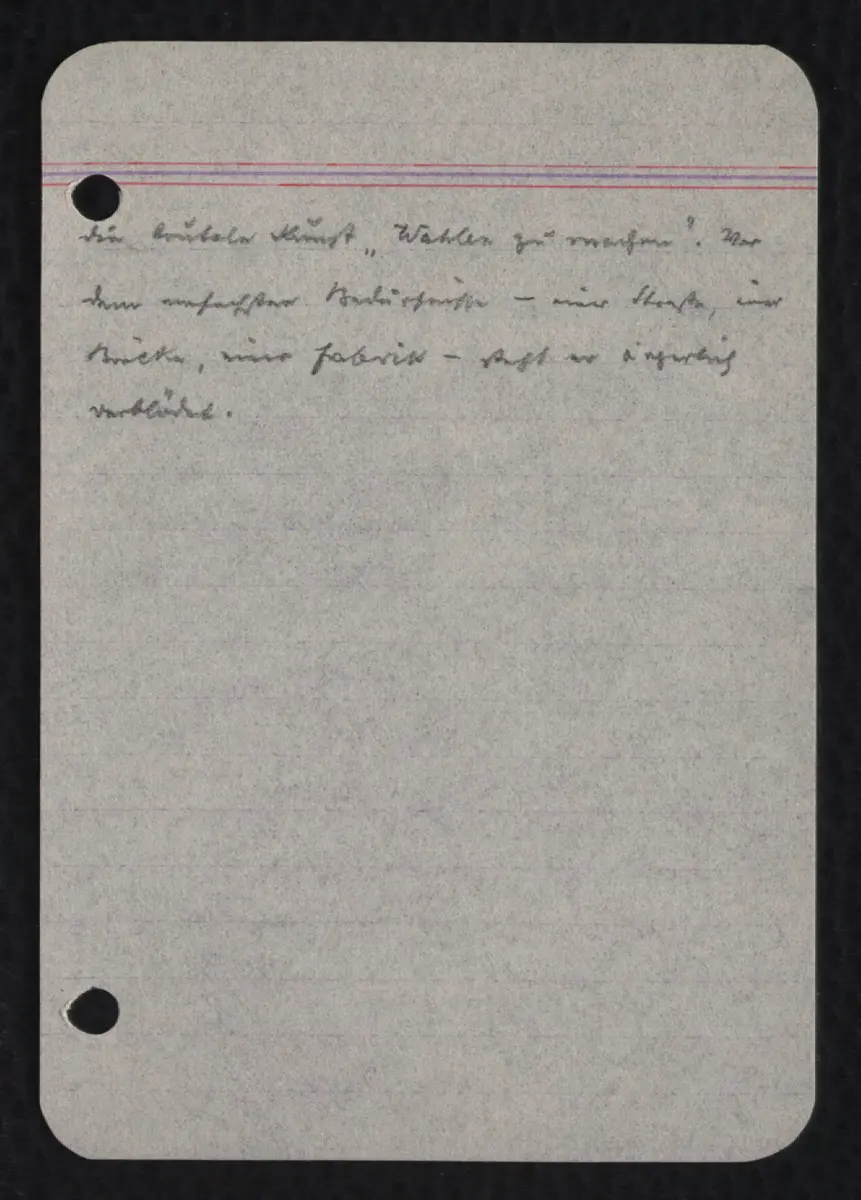 die brutale Kunst „Wahlen zu machen“. Vor
dem einfachsten Bedürfnisse – einer Straße, einer
Brücke, einer Fabrik – steht er ärgerlich
verblödet.